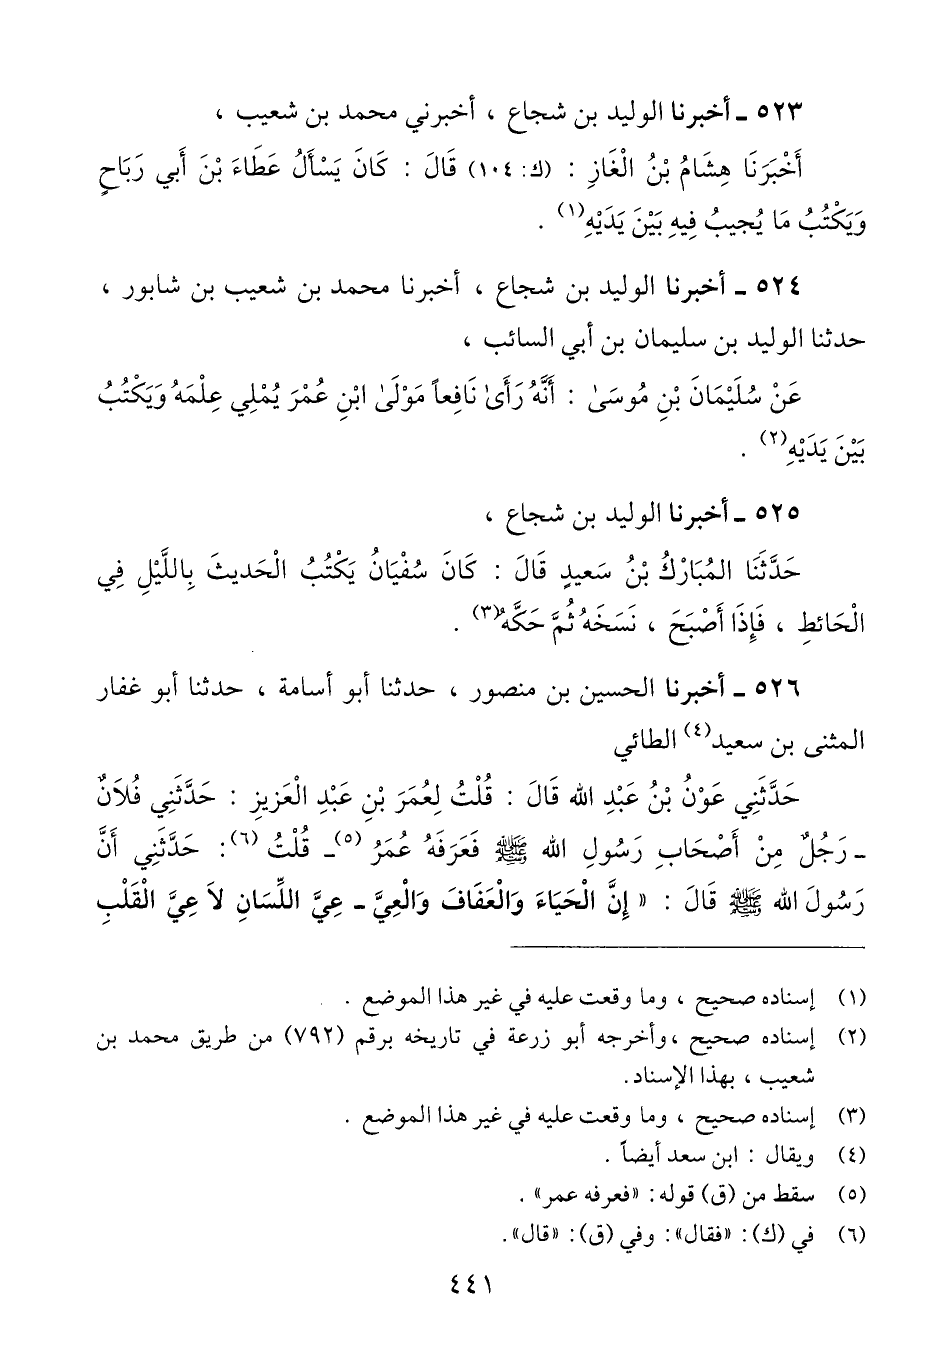 ٥٢٣ ـ أخبرنا الوليد بن شجاع ، أخبرني محمد بن شعيب ،
أَخْبَرَنَا هِشَامُ بْنُ الْغَازِ : (ك: ١٠٤) قَالَ : كَانَ يَسْأَلُ عَطَاءَ بْنَ أَبي رَبَاحٍ
وَيَكْتُبُ مَا يُجيبُ فِيهِ بَيْنَ يَدَيْهِ(١) .
٥٢٤ ـ أخبرنا الوليد بن شجاع ، أخبرنا محمد بن شعيب بن شابور ،
حدثنا الوليد بن سليمان بن أبي السائب ،
عَنْ سُلَيْمَانَ بْنِ مُوسَىٰ : أَنَّهُ رَأَىٰ نَافِعاً مَوْلَىٰ ابْنِ عُمَرَ يُمْلِي عِلْمَهُ وَيَكْتُبُ
بَيْنَ يَدَيْهِ(٢) .
٥٢٥ ـ أخبرنا الوليد بن شجاع ،
حَدَّثَنَا الْمُبَارَكُ بْنُ سَعيدٍ قَالَ : كَانَ سُفْيَانُ يَكْتُبُ الْحَديثَ بِاللَّيْلِ فِي
الْحَائطِ ، فَإِذَا أَصْبَحَ ، نَسَخَهُ ثُمَّ حَكَّهُ(٣) .
٥٢٦ ـ أخبرنا الحسين بن منصور ، حدثنا أبو أسامة ، حدثنا أبو غفار
المثنى بن سعيد(٤) الطائي
حَدَّثَنِي عَوْنُ بْنُ عَبْدِ الله قَالَ : قُلْتُ لِعُمَرَ بْنِ عَبْدِ الْعَزيزِ : حَدَّثَنِي فُلاَنٌ
ـ رَجُلٌ مِنْ أَصْحَابِ رَسُولِ الله ﷺ فَعَرَفَهُ عُمَرُ (٥)ـ قُلْتُ (٦): حَدَّثَنِي أَنَّ
رَسُولَ الله ﷺ قَالَ : « إِنَّ الْحَيَاءَ وَالْعَفَافَ وَالْعِيَّ ـ عِيَّ اللِّسَانِ لاَ عِيَّ الْقَلْبِ
(١) إسناده صحيح ، وما وقعت عليه في غير هذا الموضع .
(٢) إسناده صحيح ،وأخرجه أبو زرعة في تاريخه برقم (٧٩٢) من طريق محمد بن
شعيب ، بهذا الإسناد.
(٣) إسناده صحيح ، وما وقعت عليه في غير هذا الموضع .
(٤) ويقال : ابن سعد أيضاً .
(٥) سقط من (ق) قوله: «فعرفه عمر» .
(٦) في (ك): «فقال»: وفي (ق): «قال».
٤٤١